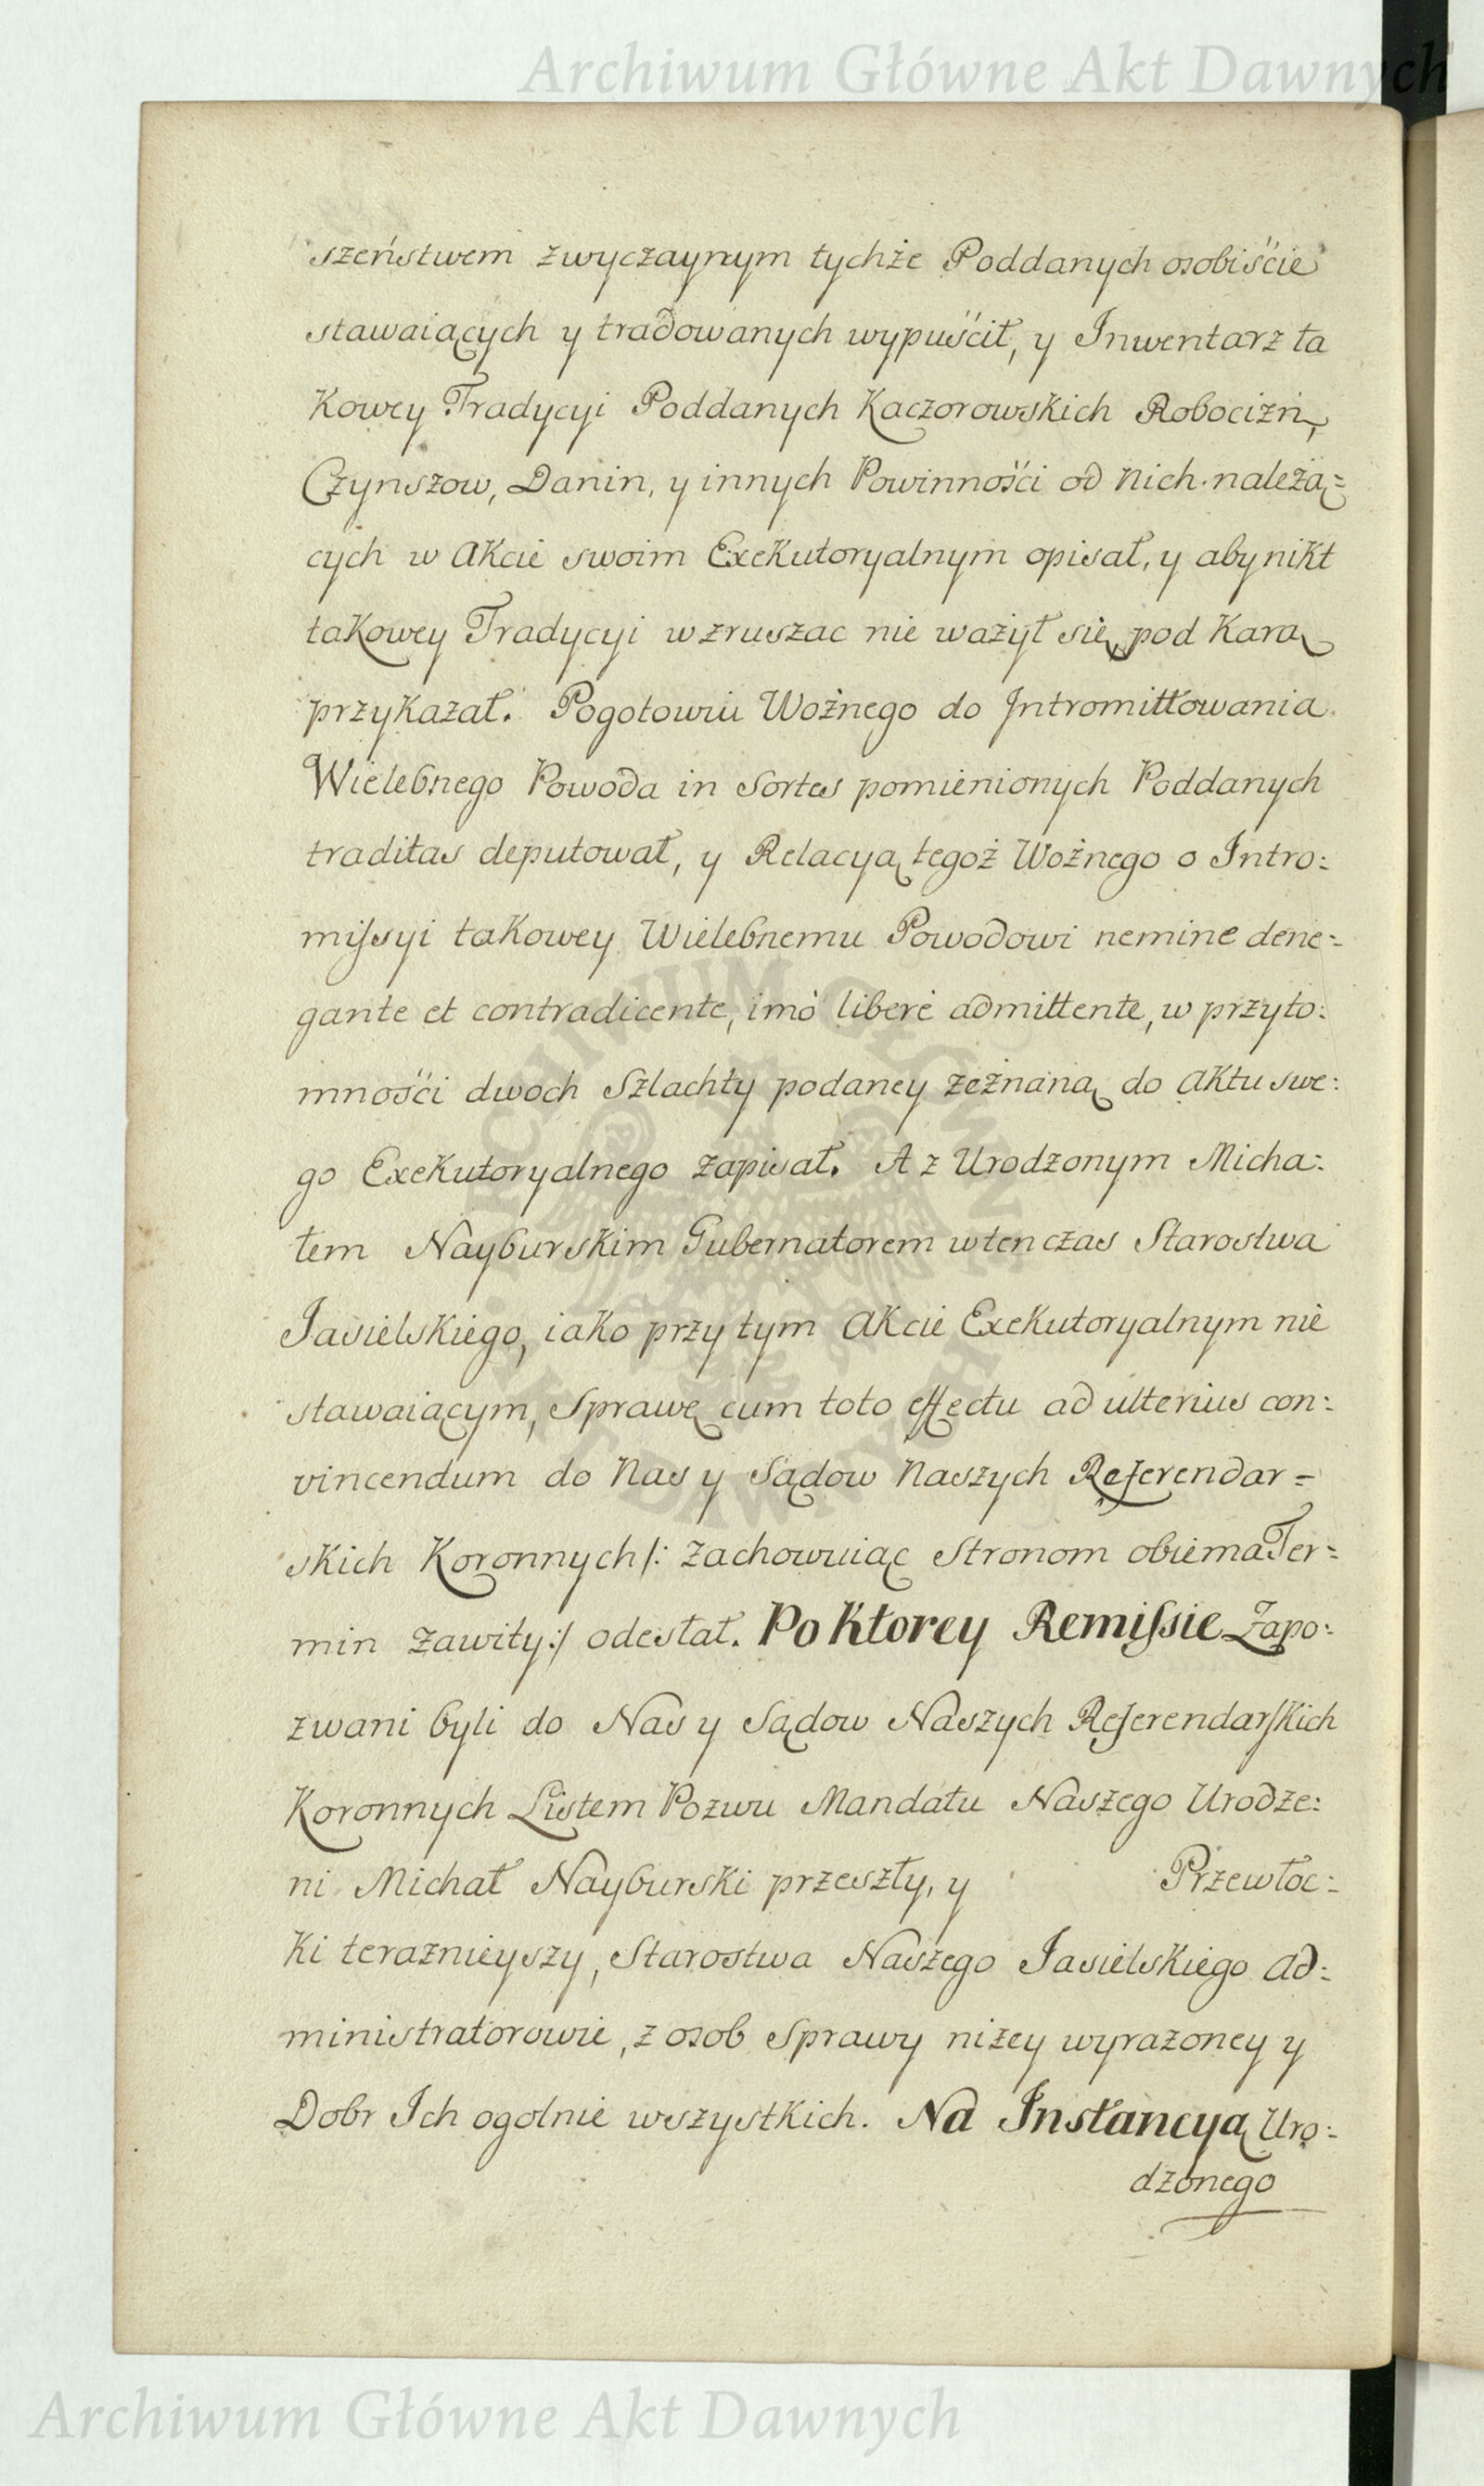 Archiwum Główne Akt Dawnych
szeństwem zwyczaynym tychże Poddanych osobiście
stawaiących y tradowanych wypuścił, y Inwentarz ta
kowey Tradycyi Poddanych Kaczorowskich Robocizn,
Czynszow, Danin, y innych Powinności od Nich należą=
cych w Akcie swoim Exekutoryalnym opisał, y aby nikt
takowey Tradycyi wzruszac nie ważył się, pod Karą
przykazał. Pogotowiu Woźnego do Intromittowania
Wielebnego Powoda in Sortes pomienionych Poddanych
traditas deputował, y Relacyą tegoż Woźnego o Intro:
missyi takowey Wielebnemu Powodowi nemine dene=
gante et contradicente, imò liberè admittente, w przyto:
mności dwoch Szlachty podaney zeźnaną do Aktu swe:
go Exekutoryalnego zapisał. A z Urodzonym Micha:
łem Nayburskim Gubernatorem wtenczas Starostwa
Jasielskiego, iako przy tym Akcie Exekutoryalnym nie
stawaiącym, Sprawę cum toto effectu ad ulterius con:
vincendum do Nas y Sądow Naszych Referendar=
skich Koronnych /: zachowuiąc Stronom obiema Ter=
min zawity :/ odesłał. Po Ktorey Remissie Zapo:
zwani byli do Nas y Sądow Naszych Referendarskich
Koronnych Listem Pozwu Mandatu Naszego Urodze:
ni Michał Nayburski przeszły, y Przewłoc:
ki teraznieyszy, Starostwa Naszego Jasielskiego Ad:
ministratorowie, z osob Sprawy niżey wyrażoney y
Dobr Ich ogolnie wszystkich. Na Instancyą Uro:
dzonego
Archiwum Główne Akt Dawnych